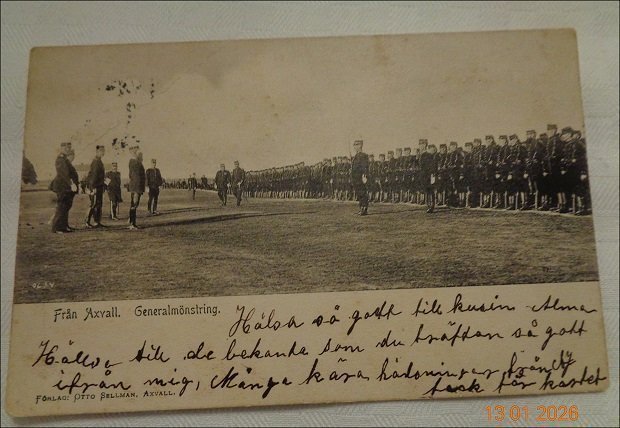 9634
Från Axvall. Generalmönstring.
Hälsa så gott till kusin Alma
Hälsa till de bekanta som du träffar så gott
ifrån mig, Många kära hälsningar från
tack för kortet
Förlag: Otto Sellman, Axvall.
13 01 2026